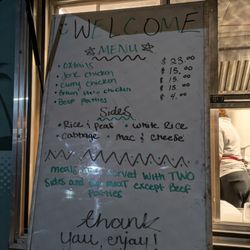 WELCOME
MENU
• Oxtails $ 23.00
• Jerk chicken $ 15.00
• Curry chicken $ 15.00
• Brown stew chicken $ 15.00
• Beef Patties $ 4.00
Sides
• Rice & Peas • White Rice
• Cabbage • Mac & cheese
meals are served with TWO
Sides and meat except Beef
Patties
thank
you, enjoy!